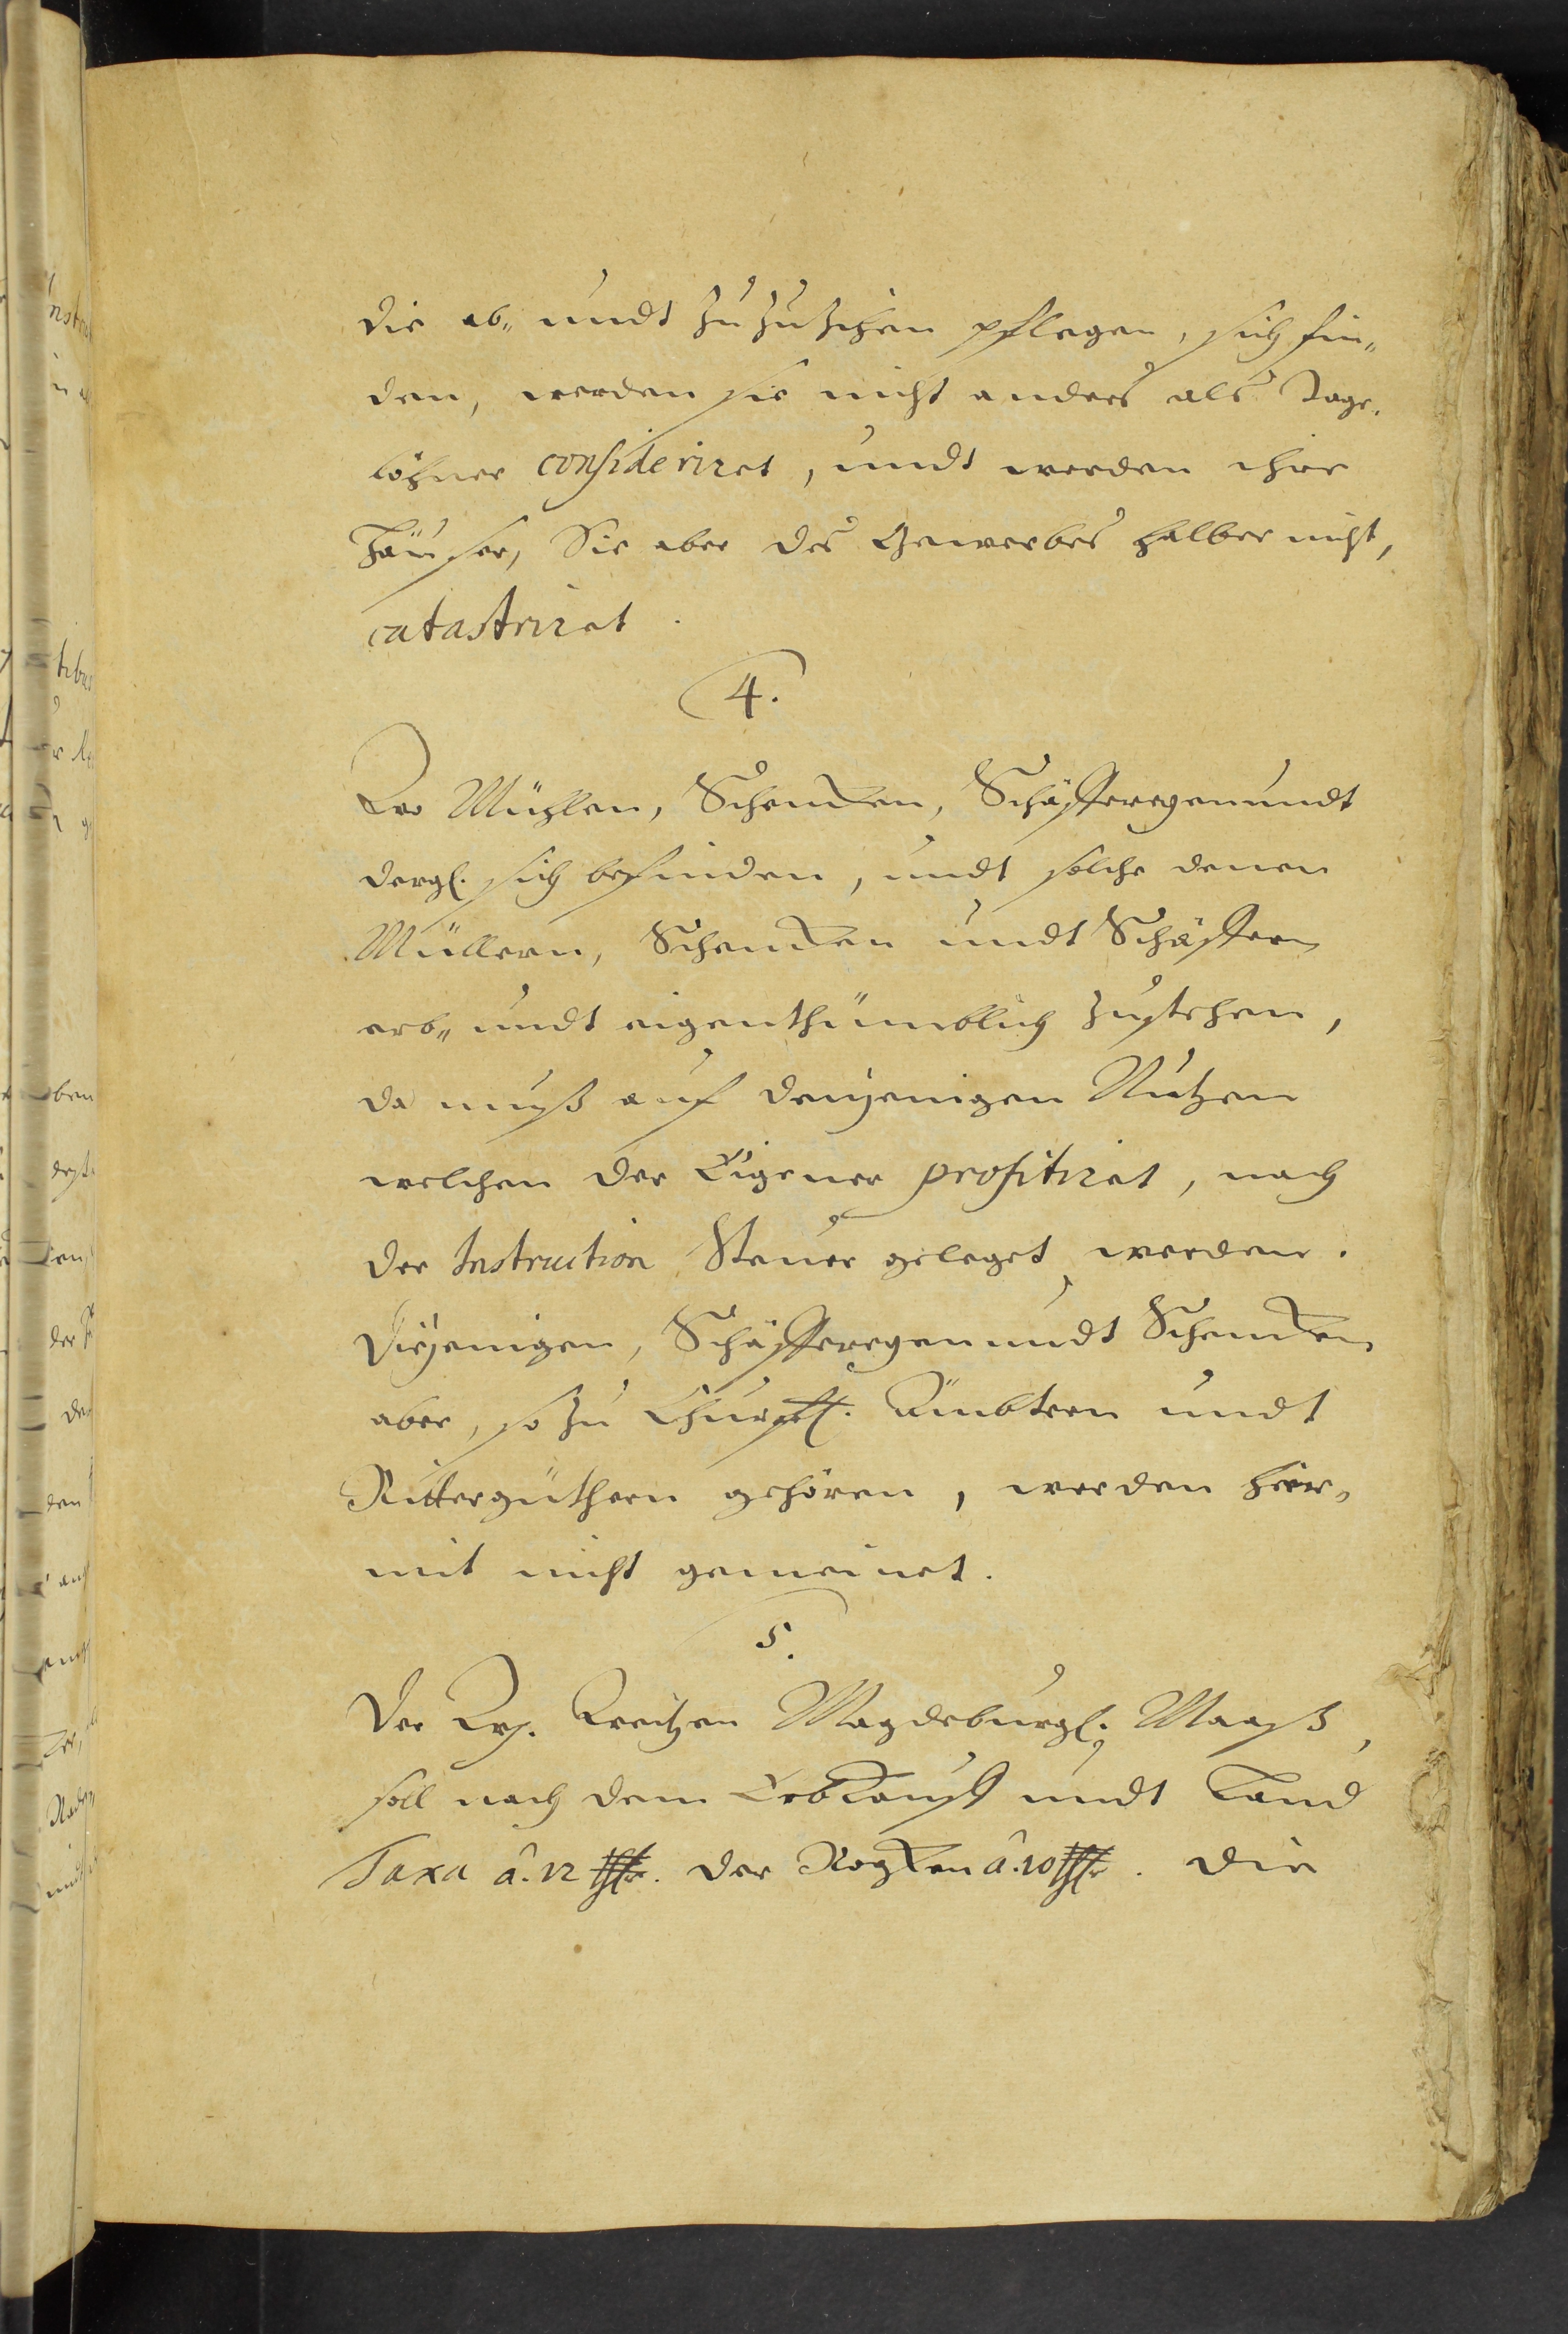 die ab- undt zuzuziehen pflegen, sich fin-
den, werden sie nicht anders als Tage-
löhner consideriret, undt werden ihre
Häuser, Sie aber des Gewerbes halber nicht,
catastriret.
4.
Wo Mühlen, Schencken, Schäffereyen undt
dergl. sich befinden, undt solche denen
Müllern, Schencken undt Schäffern
erb- undt eigenthümblich zustehen,
da muß auf denjenigen Nutzen
welchen der Eigener profitiret, nach
der Instruction Steuer geleget werden.
Diejenigen, Schäffereyen undt Schencken
aber, so zu Churfl. Ämbtern undt
Rittergüthern gehören, werden hier-
mit nicht gemeinet.
5.
Der Wsp. Weitzen Magdeburgl. Maaß,
soll nach dem Erbkauff undt Land
Taxa â. 12 der Rogken â. 10 die